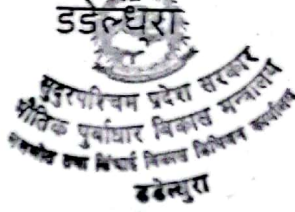 डडेल्धुरा
सुदुरपश्चिम प्रदेश सरकार
भौतिक पुर्वाधार विकास मन्त्रालय
तथा सिंचाई विकास डिभिजन कार्यालय
डडेल्धुरा